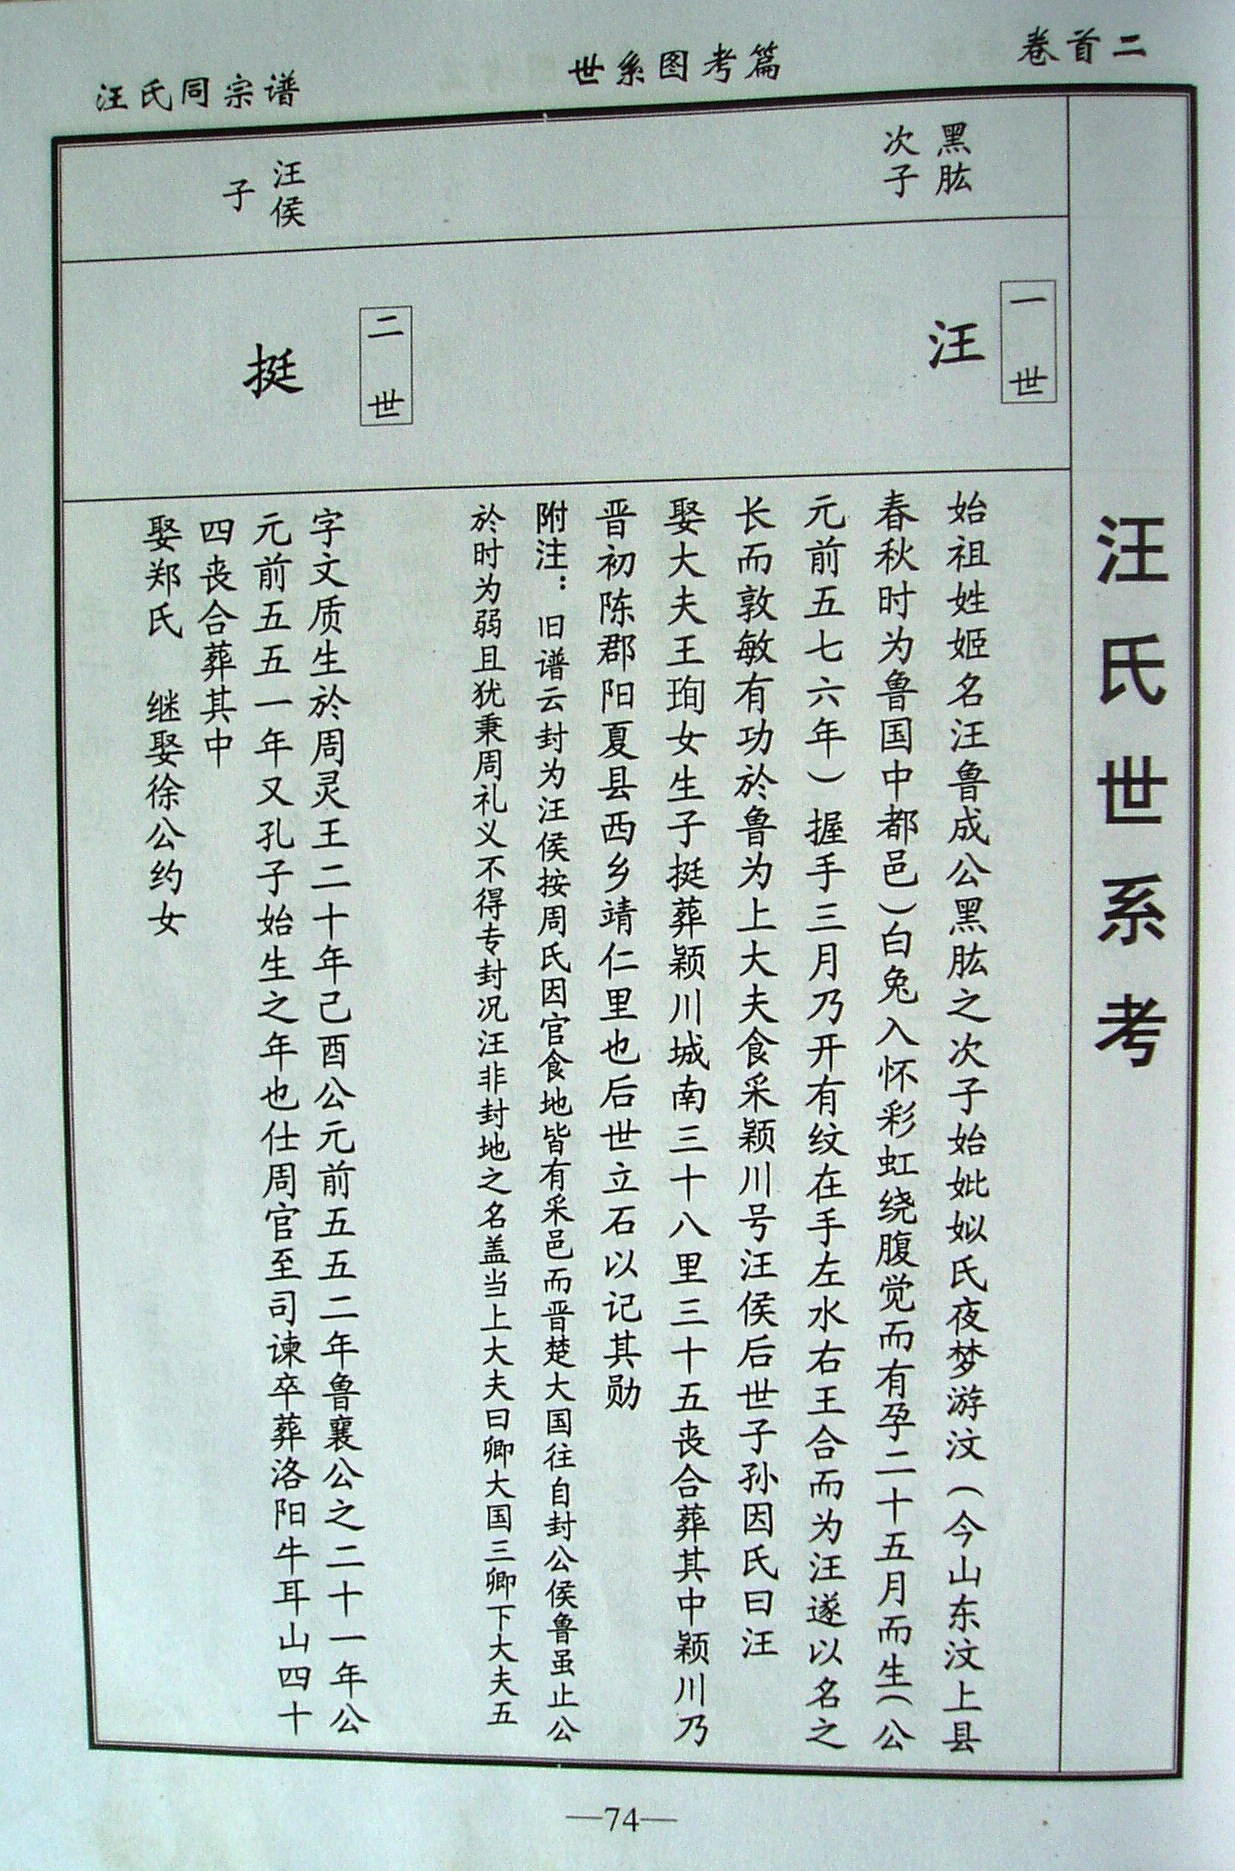 卷首二
世系图考篇
汪氏同宗谱
汪氏世系考
黑肱
次子
一世
汪
始祖姓姬名汪鲁成公黑肱之次子始妣姒氏夜梦游汶（今山东汶上县
春秋时为鲁国中都邑）白兔入怀彩虹绕腹觉而有孕二十五月而生（公
元前五七六年）握手三月乃开有纹在手左水右王合而为汪遂以名之
长而敦敏有功於鲁为上大夫食采颍川号汪侯后世子孙因氏曰汪
娶大夫王珣女生子挺葬颍川城南三十八里三十五丧合葬其中颍川乃
晋初陈郡阳夏县西乡靖仁里也后世立石以记其勋
附注：旧谱云封为汪侯按周氏因官食地皆有采邑而晋楚大国往自封公侯鲁虽止公
於时为弱且犹秉周礼义不得专封况汪非封地之名盖当上大夫曰卿大国三卿下大夫五
汪侯
子
二世
挺
字文质生於周灵王二十年己酉公元前五五二年鲁襄公之二十一年公
元前五五一年又孔子始生之年也仕周官至司谏卒葬洛阳牛耳山四十
四丧合葬其中
娶郑氏 继娶徐公约女
—74—